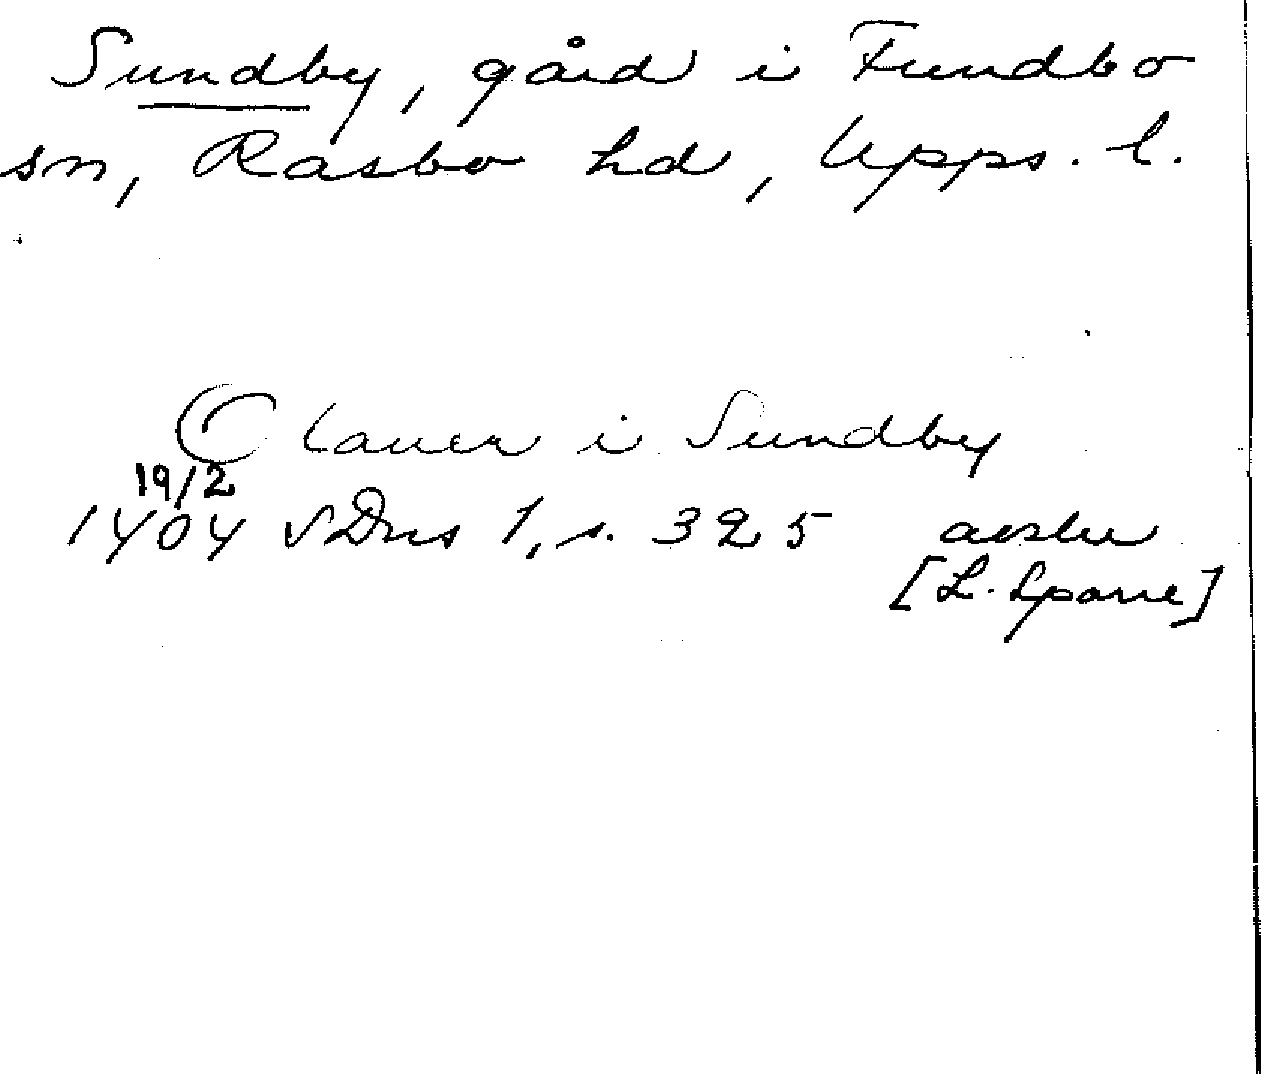 Sundby, gård i Funbo
sn, Rasbo hd, Upps. l.
Olauer i Sundby
19/2
1404 SDns 1, s. 325 avskr
[L. Sparre]